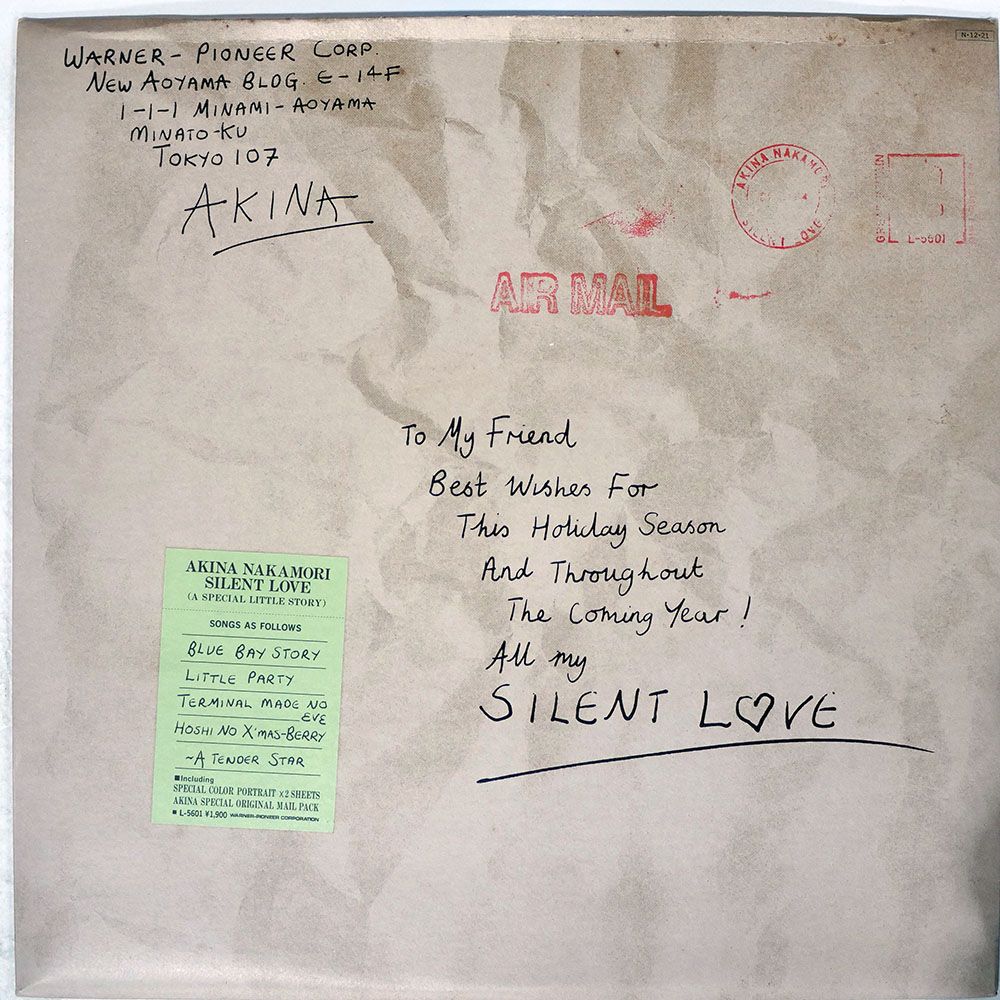 N-12-21
WARNER - PIONEER CORP.
NEW AOYAMA BLDG. E - 14F
1-1-1 MINAMI - AOYAMA
MINATO-KU
TOKYO 107
AKINA
AKINA NAKAMORI
SILENT LOVE
L-5601
AIR MAIL
To My Friend
Best Wishes For
This Holiday Season
And Throughout
The Coming Year !
All my
SILENT L♡VE
AKINA NAKAMORI
SILENT LOVE
(A SPECIAL LITTLE STORY)
SONGS AS FOLLOWS
BLUE BAY STORY
LITTLE PARTY
TERMINAL MADE NO
EVE
HOSHI NO X'MAS-BERRY
~A TENDER STAR
■Including
SPECIAL COLOR PORTRAIT ×2 SHEETS
AKINA SPECIAL ORIGINAL MAIL PACK
■ L-5601 ¥1,900 WARNER-PIONEER CORPORATION